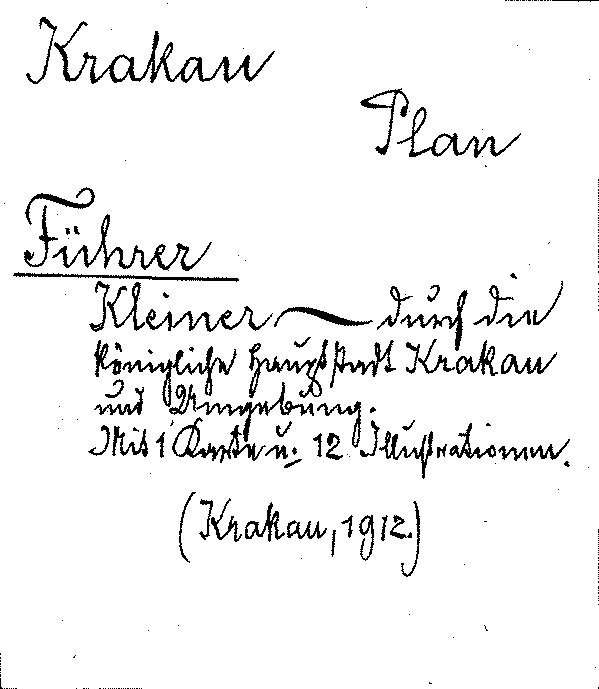 Krakau
Plan
Führer
Kleiner ~ durch die
königliche Hauptstadt Krakau
und Umgebung.
Mit 1 Karte u. 12 Illustrationen.
(Krakau, 1912.)